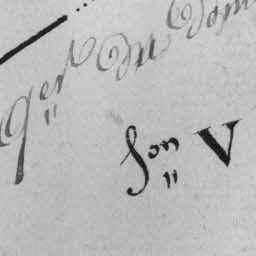 qer du dom
son V